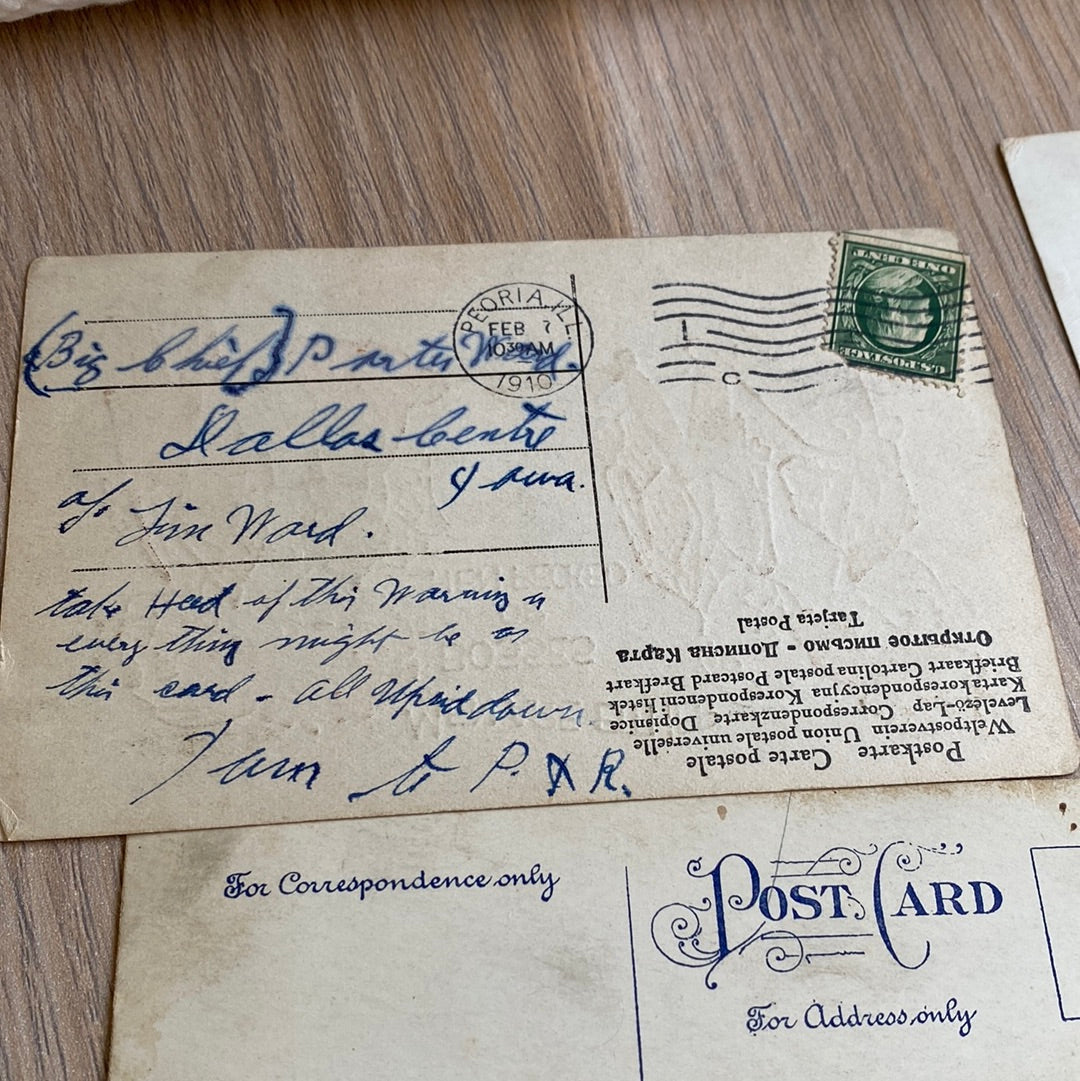 PEORIA, ILL.
FEB 7
10 30 AM
1910
ONE CENT
U.S. POSTAGE
{Big Chief} Porter Ward.
Dallas Centre
Iowa.
c/o Jim Ward.
take Heed of this Warning
every thing might be as
this card - all Upsid down.
P. R.
Tarjeta Postal
Открытое письмо - Дописна Карта
Briefkaart Cartolina postale Postcard Brefkort
Karta korespondencyjna Korespondencni listek
Levelező-Lap Correspondenzkarte Dopisnice
Weltpostverein Union postale universelle
Postkarte Carte postale
For Correspondence only
POST CARD
For Address only